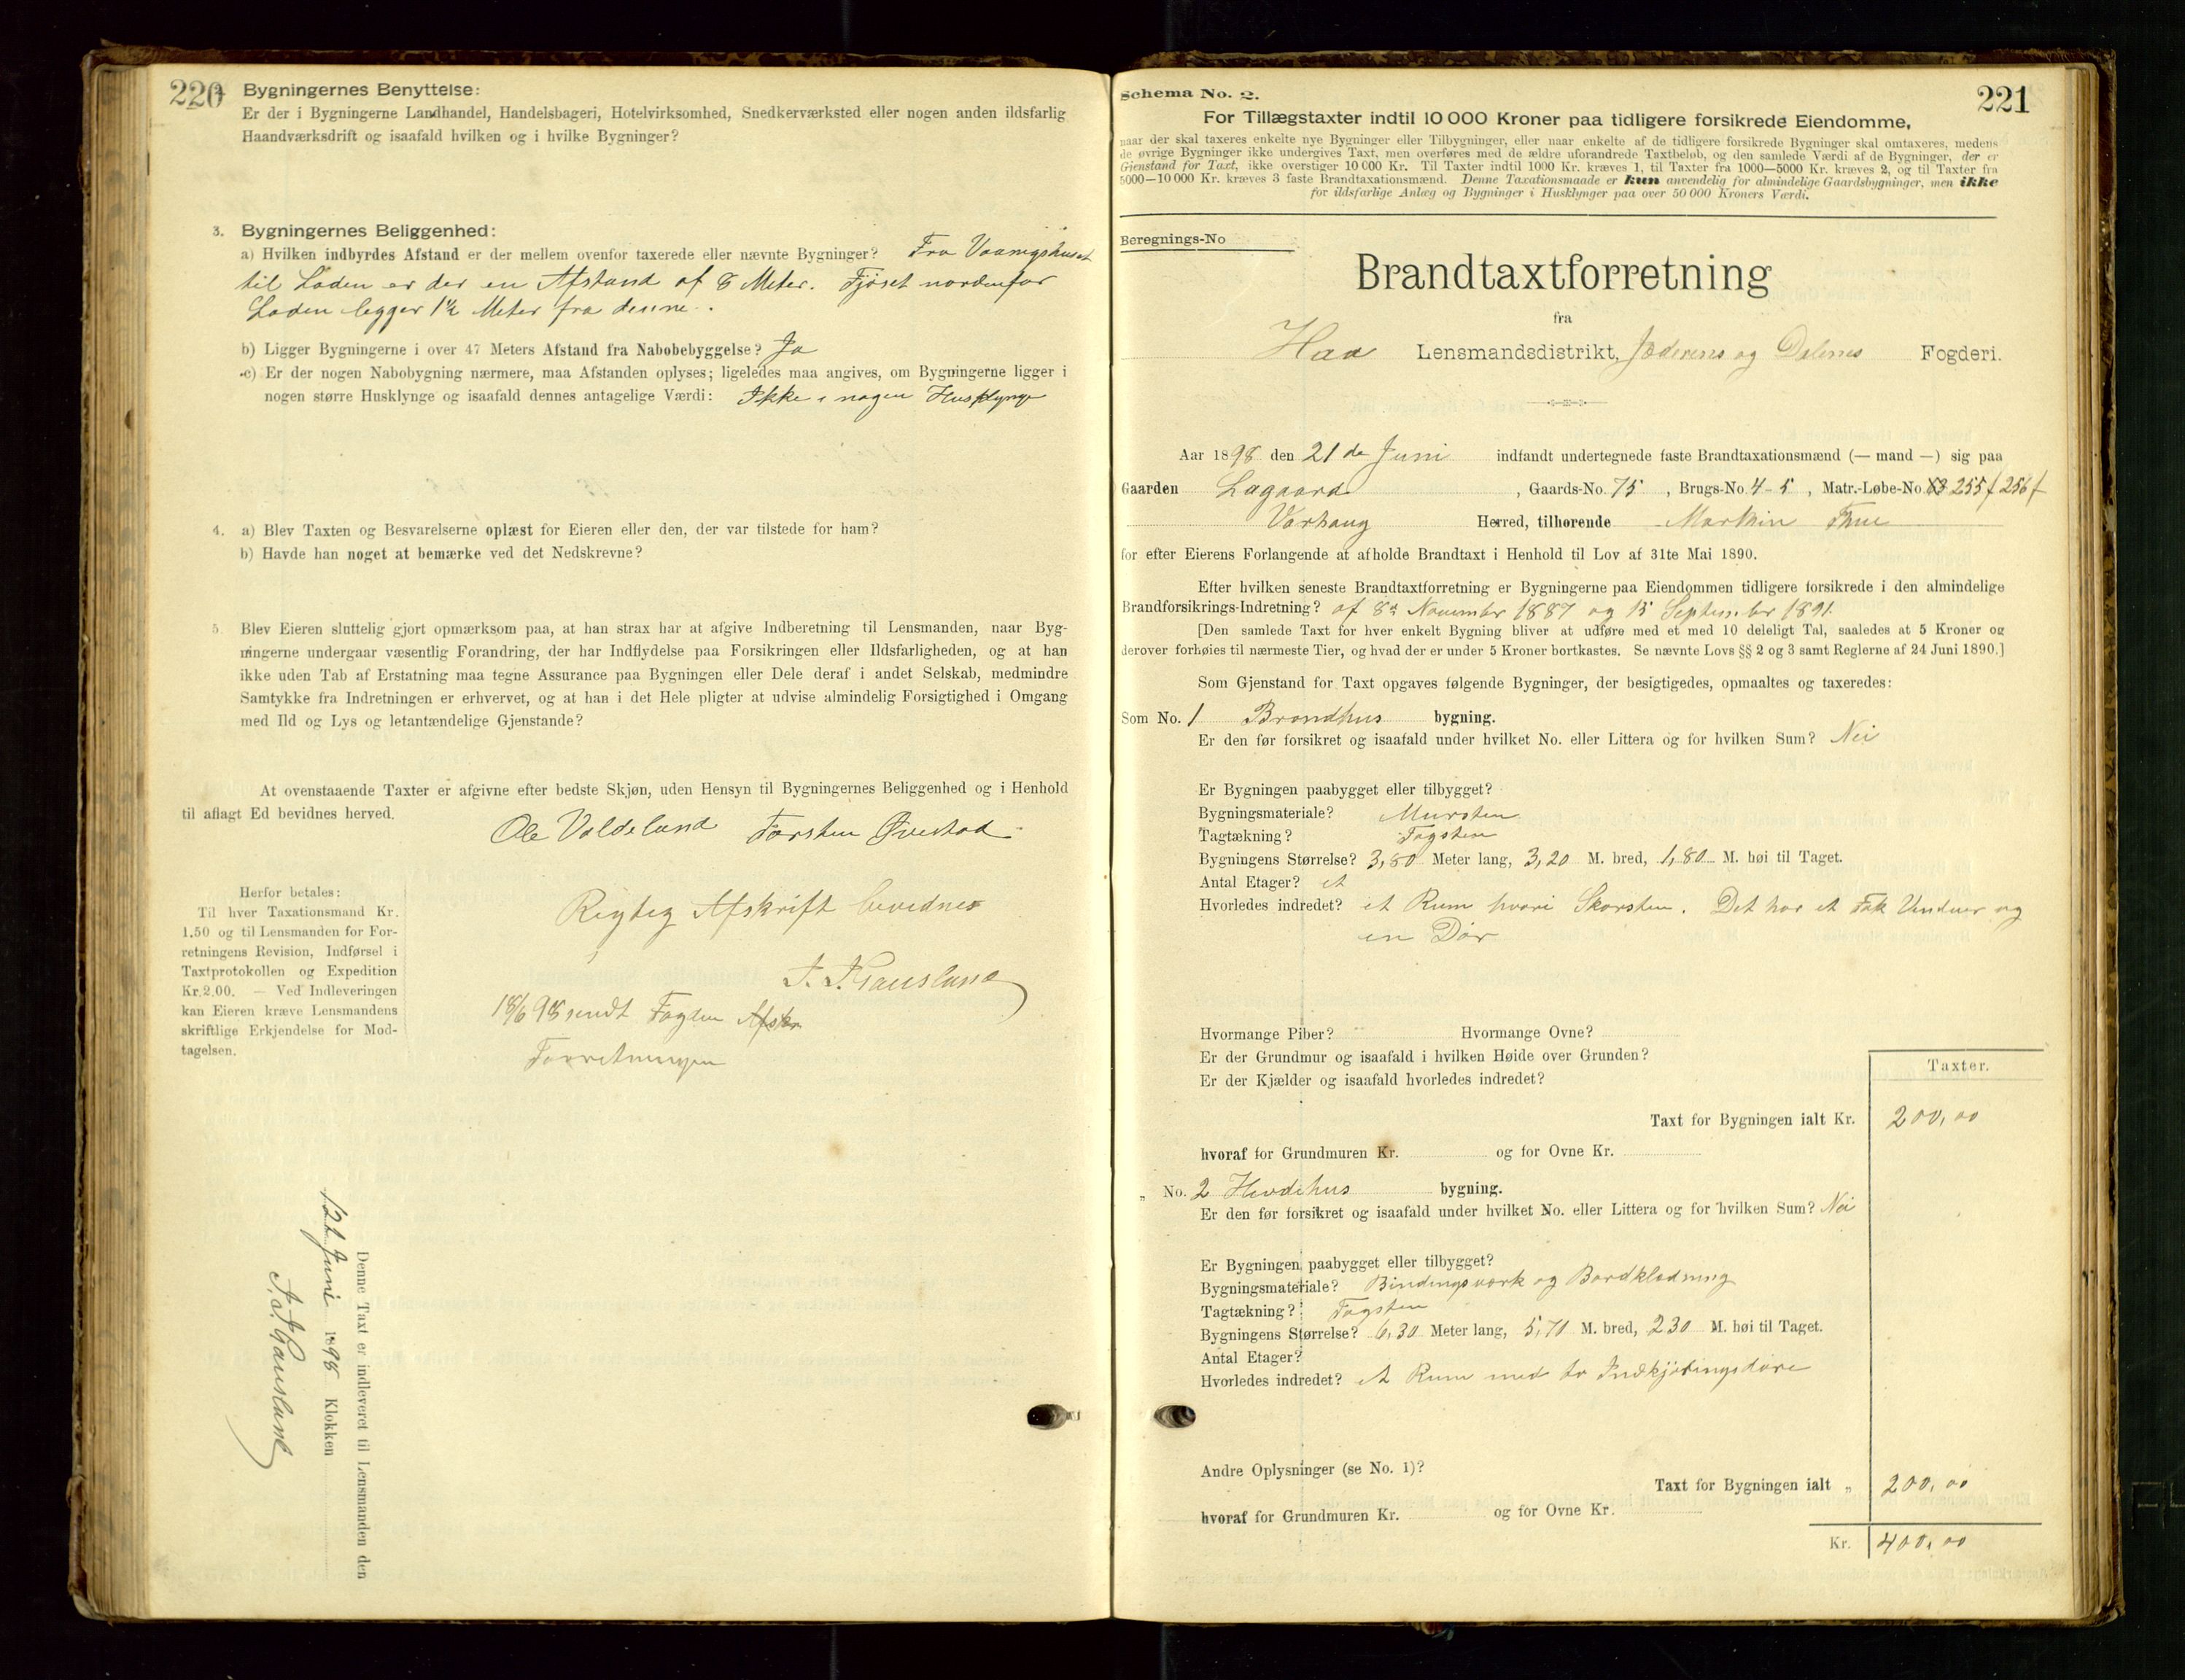 220
Bygningernes Benyttelse:
Er der i Bygningerne Landhandel, Handelsbageri, Hotelvirksomhed, Snedkerværksted eller nogen anden ildsfarlig
Haandværksdrift og isaafald hvilken og i hvilke Bygninger?
3. Bygningernes Beliggenhed:
a) Hvilken indbyrdes Afstand er der mellem ovenfor taxerede eller nævnte Bygninger? Fra Vaanigshuset
til Laden er der en Afstand af 8 Meter. Fjøset nordenfor
Laden legger 1½ Meter fra denne.
b) Ligger Bygningerne i over 47 Meters Afstand fra Nabobebyggelse? Ja
c) Er der nogen Nabobygning nærmere, maa Afstanden oplyses; ligeledes maa angives, om Bygningerne ligger i
nogen større Husklynge og isaafald dennes antagelige Værdi: Ikke i nogen Husklynge
4. a) Blev Taxten og Besvarelserne oplæst for Eieren eller den, der var tilstede for ham?
b) Havde han noget at bemærke ved det Nedskrevne?
5. Blev Eieren sluttelig gjort opmærksom paa, at han strax har at afgive Indberetning til Lensmanden, naar Byg-
ningerne undergaar væsentlig Forandring, der har Indflydelse paa Forsikringen eller Ildsfarligheden, og at han
ikke uden Tab af Erstatning maa tegne Assurance paa Bygningen eller Dele deraf i andet Selskab, medmindre
Samtykke fra Indretningen er erhvervet, og at han i det Hele pligter at udvise almindelig Forsigtighed i Omgang
med Ild og Lys og letantændelige Gjenstande?
At ovenstaaende Taxter er afgivne efter bedste Skjøn, uden Hensyn til Bygningernes Beliggenhed og i Henhold
til aflagt Ed bevidnes herved.
Ole Valdeland Torsten
Herfor betales:
Til hver Taxationsmand Kr.
1.50 og til Lensmanden for For-
retningens Revision, Indførsel i
Taxtprotokollen og Expedition
Kr. 2.00. — Ved Indleveringen
kan Eieren kræve Lensmandens
skriftlige Erkjendelse for Mod-
tagelsen.
Rigtig Afskrift bevidnes
18/6 98 sendt Fogden Afskr
Forretningen
Denne Taxt er indleveret til Lensmanden den
12t Juni 1898 Klokken
221
Schema No. 2.
For Tillægstaxter indtil 10 000 Kroner paa tidligere forsikrede Eiendomme,
naar der skal taxeres enkelte nye Bygninger eller Tilbygninger, eller naar enkelte af de tidligere forsikrede Bygninger skal omtaxeres, medens
de øvrige Bygninger ikke undergives Taxt, men overføres med de ældre uforandrede Taxtbeløb, og den samlede Værdi af de Bygninger, der er
Gjenstand for Taxt, ikke overstiger 10 000 Kr. Til Taxter indtil 1000 Kr. kræves 1, til Taxter fra 1000—5000 Kr. kræves 2, og til Taxter fra
5000—10 000 Kr. kræves 3 faste Brandtaxationsmænd. Denne Taxationsmaade er kun anvendelig for almindelige Gaardsbygninger, men ikke
for ildsfarlige Anlæg og Bygninger i Husklynger paa over 50 000 Kroners Værdi.
Beregnings-No
Brandtaxtforretning
fra
Haa Lensmandsdistrikt, Jæderens og Dalenes Fogderi.
Aar 1898 den 21de Juni indfandt undertegnede faste Brandtaxationsmænd (— mand —) sig paa
Gaarden Lagaard, Gaards-No. 75, Brugs-No. 4-5, Matr.-Løbe-No. 255f 256f
Varhaug Herred, tilhørende Marthin
for efter Eierens Forlangende at afholde Brandtaxt i Henhold til Lov af 31te Mai 1890.
Efter hvilken seneste Brandtaxtforretning er Bygningerne paa Eiendommen tidligere forsikrede i den almindelige
Brandforsikrings-Indretning? af 8de November 1887 og 15 September 1891.
[Den samlede Taxt for hver enkelt Bygning bliver at udføre med et med 10 deleligt Tal, saaledes at 5 Kroner og
derover forhøies til nærmeste Tier, og hvad der er under 5 Kroner bortkastes. Se nævnte Lovs §§ 2 og 3 samt Reglerne af 24 Juni 1890.]
Som Gjenstand for Taxt opgaves følgende Bygninger, der besigtigedes, opmaaltes og taxeredes:
Som No. 1 Brandhus bygning.
Er den før forsikret og isaafald under hvilket No. eller Littera og for hvilken Sum? Nei
Er Bygningen paabygget eller tilbygget?
Bygningsmateriale? Mursten
Tagtækning? Tagsten
Bygningens Størrelse? 3,80 Meter lang, 3,20 M. bred, 1,80 M. høi til Taget.
Antal Etager? et
Hvorledes indredet? et Rum hvori Skorsten. Det har et Fak Vinduer og
en Dør
Hvormange Piber? Hvormange Ovne?
Er der Grundmur og isaafald i hvilken Høide over Grunden?
Er der Kjælder og isaafald hvorledes indredet?
Taxter.
Taxt for Bygningen ialt Kr. 200,00
hvoraf for Grundmuren Kr. og for Ovne Kr.
„ No. 2 bygning.
Er den før forsikret og isaafald under hvilket No. eller Littera og for hvilken Sum? Nei
Er Bygningen paabygget eller tilbygget?
Bygningsmateriale? Bindingsværk og Bordklædning
Tagtækning? Tagsten
Bygningens Størrelse? 6,30 Meter lang, 5,70 M. bred, 230 M. høi til Taget.
Antal Etager?
Hvorledes indredet? et Rum med to Indkjøringsdøre
Andre Oplysninger (se No. 1)?
Taxt for Bygningen ialt „ 200,00
hvoraf for Grundmuren Kr. og for Ovne Kr.
Kr. 400,00